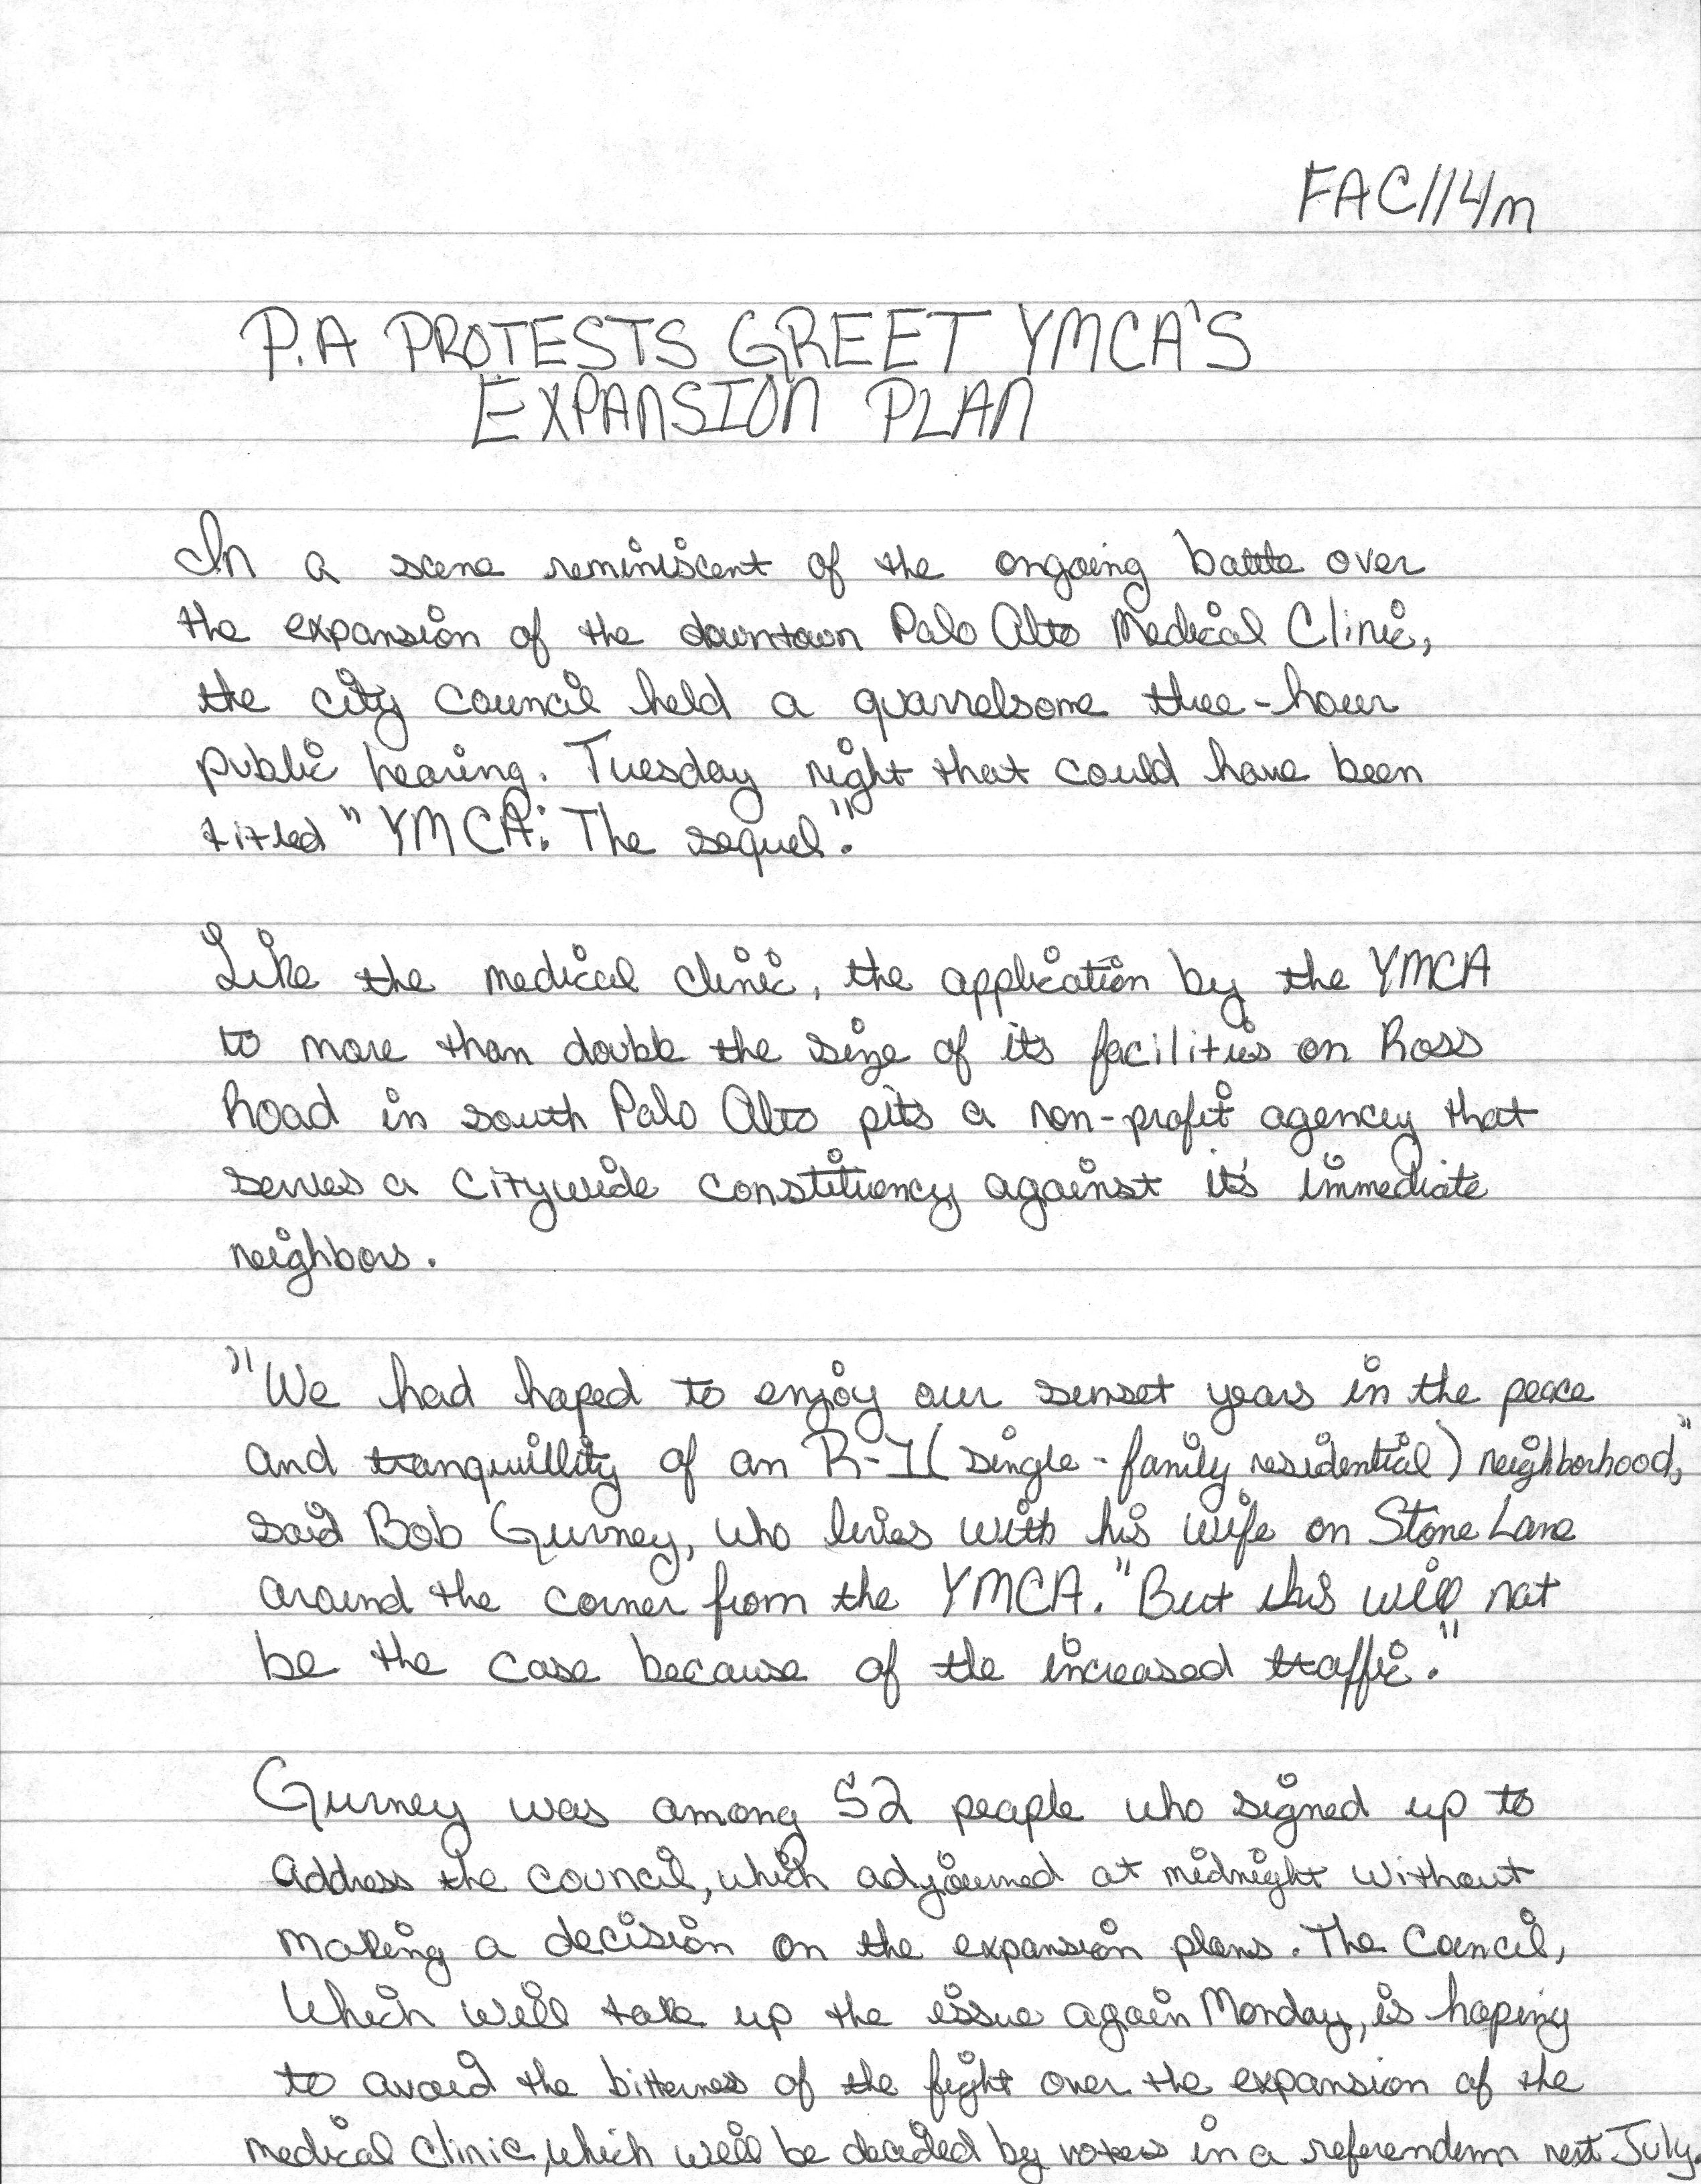 FAC114m
P.A PROTESTS GREET YMCA'S
EXPANSION PLAN
In a scene reminiscent of the ongoing battle over
the expansion of the downtown Palo Alto Medical Clinic,
the city council held a quarrelsome thee-hour
public hearing. Tuesday night that could have been
titled "YMCA: The sequel."
Like the medical clinic, the application by the YMCA
to more than double the size of its facilities on Ross
Road in south Palo Alto pits a non-profit agency that
serves a citywide constituency against it's immediate
neighbors.
"We had hoped to enjoy our sunset years in the peace
and tranquillity of an R-1 (single-family residential) neighborhood,"
said Bob Gurney, who lives with his wife on Stone Lane
around the corner from the YMCA. "But this will not
be the case because of the increased traffic."
Gurney was among 52 people who signed up to
address the council, which adjourned at midnight without
making a decision on the expansion plans. The Council,
Which will take up the issue again Monday, is hoping
to avoid the bitterness of the fight over the expansion of the
medical clinic, which will be decided by voters in a referendum next July.